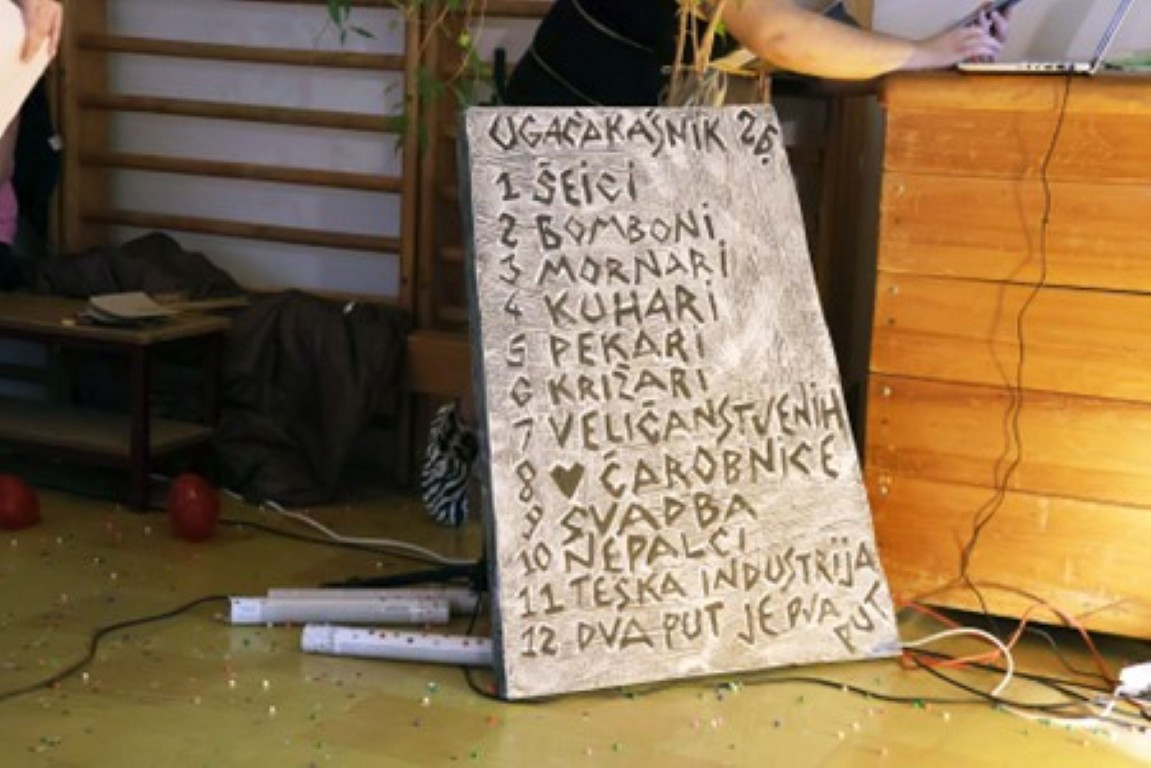 UGAČAKAŠNIK 26.
1 ŠEICI
2 BOMBONI
3 MORNARI
4 KUHARI
5 PEKARI
6 KRIŽARI
7 VELIČANSTVENIH
8 ♥ ČAROBNICE
9 SVADBA
10 NEPALCI
11 TEŠKA INDUSTRIJA
12 DVA PUT JE DVA
PUT